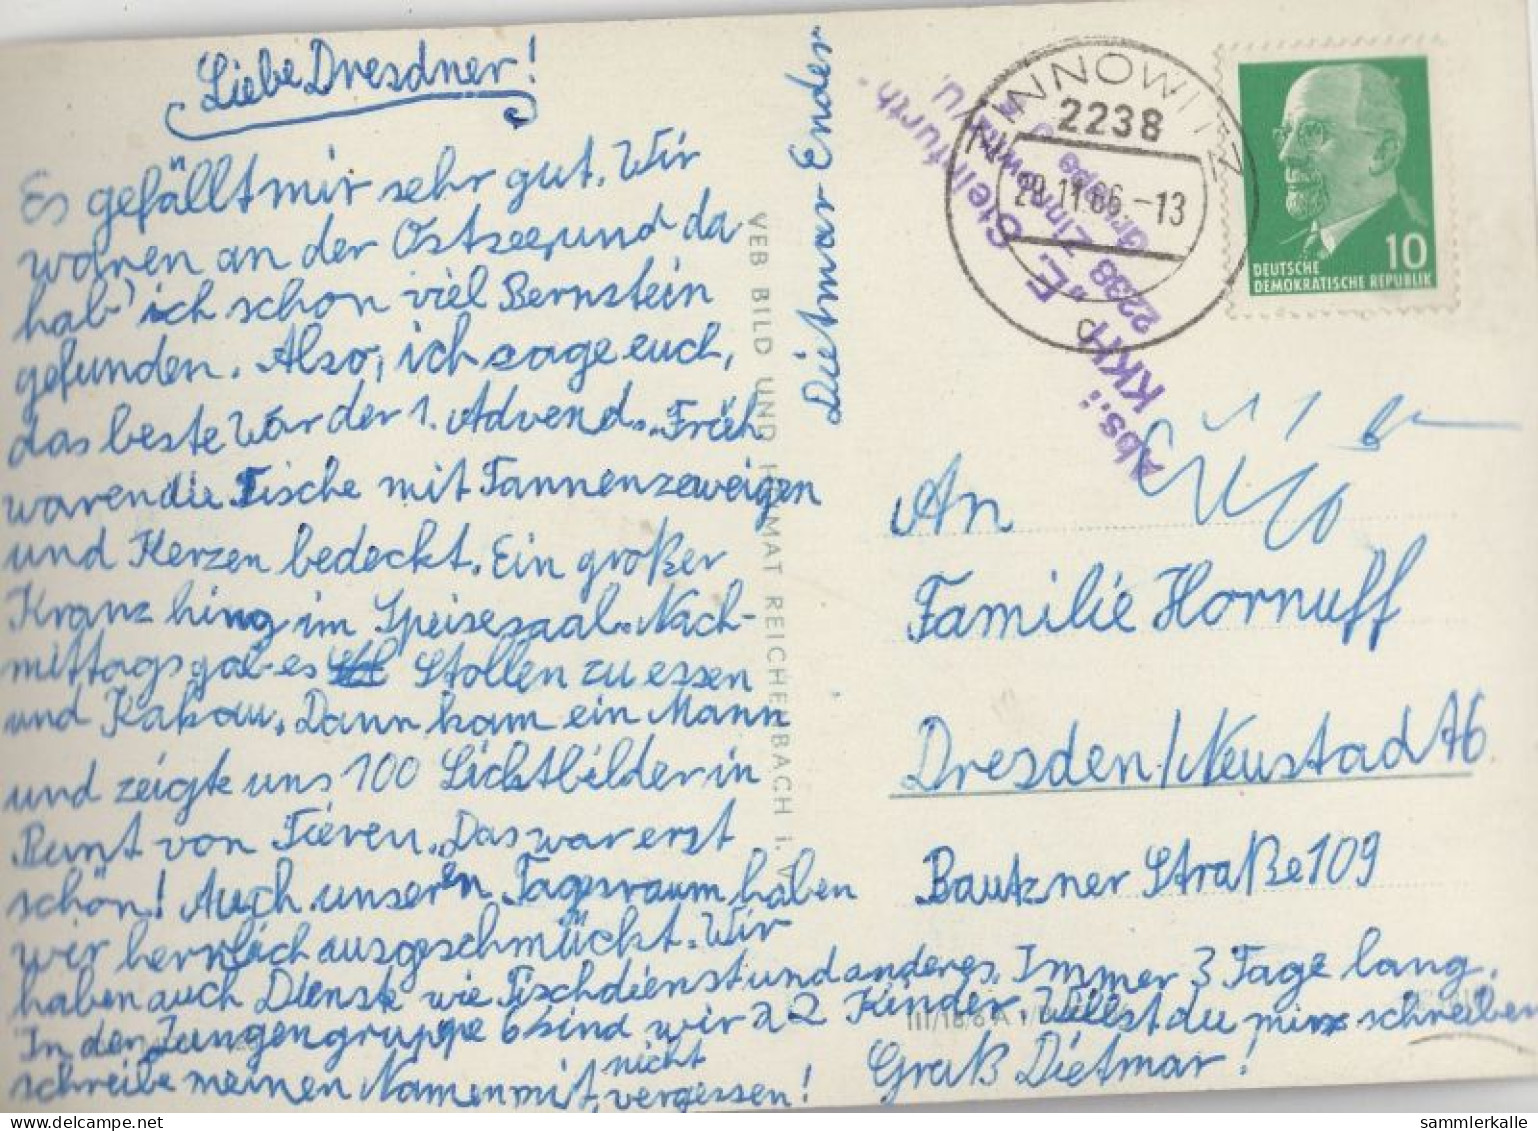 Liebe Dresdner!
Es gefällt mir sehr gut. Wir
waren an der Ostsee und da
hab' ich schon viel Bernstein
gefunden. Also, ich sage euch,
das beste war der 1. Advend. Früh
waren die Tische mit Tannenzeweigen
und Kerzen bedeckt. Ein großer
Kranz hing im Speisesaal. Nach-
mittags gab es Stollen zu essen
und Kakau. Dann kam ein Mann
und zeigte uns 100 Lichtbilder in
Bunt von Tieren. Das war erst
schön! Auch unseren Tagesraum haben
wir herrlich ausgeschmückt. Wir
haben auch Dienste wie Tischdienst und anderes. Immer 3 Tage lang.
In der Jungengruppe 6 sind wir 22 Kinder. Willst du mir schreiben
schreibe meinen Namen mit, nicht vergessen!
Gruß Dietmar!
Dietmar Ender
VEB BILD UND HEIMAT REICHENBACH i. V.
Abs.:
KKH "E. Steinfurth"
2238 Zinnowitz/U.
Gruppe 6
ZINNOWITZ
2238
29.11.66.-13
d
10
DEUTSCHE
DEMOKRATISCHE REPUBLIK
An
Familie Hornuff
Dresden/Neustad A6
Bautzner Straße 109
sammlerkalle